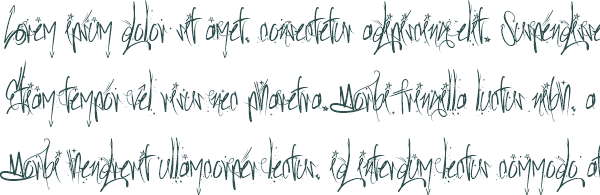 Lorem ipsum dolor sit amet, consectetur adipiscing elit. Suspendisse
Etiam tempor vel risus nec pharetra. Morbi fringilla luctus nibh, a
Morbi hendrerit ullamcorper lectus, id interdum lectus commodo at